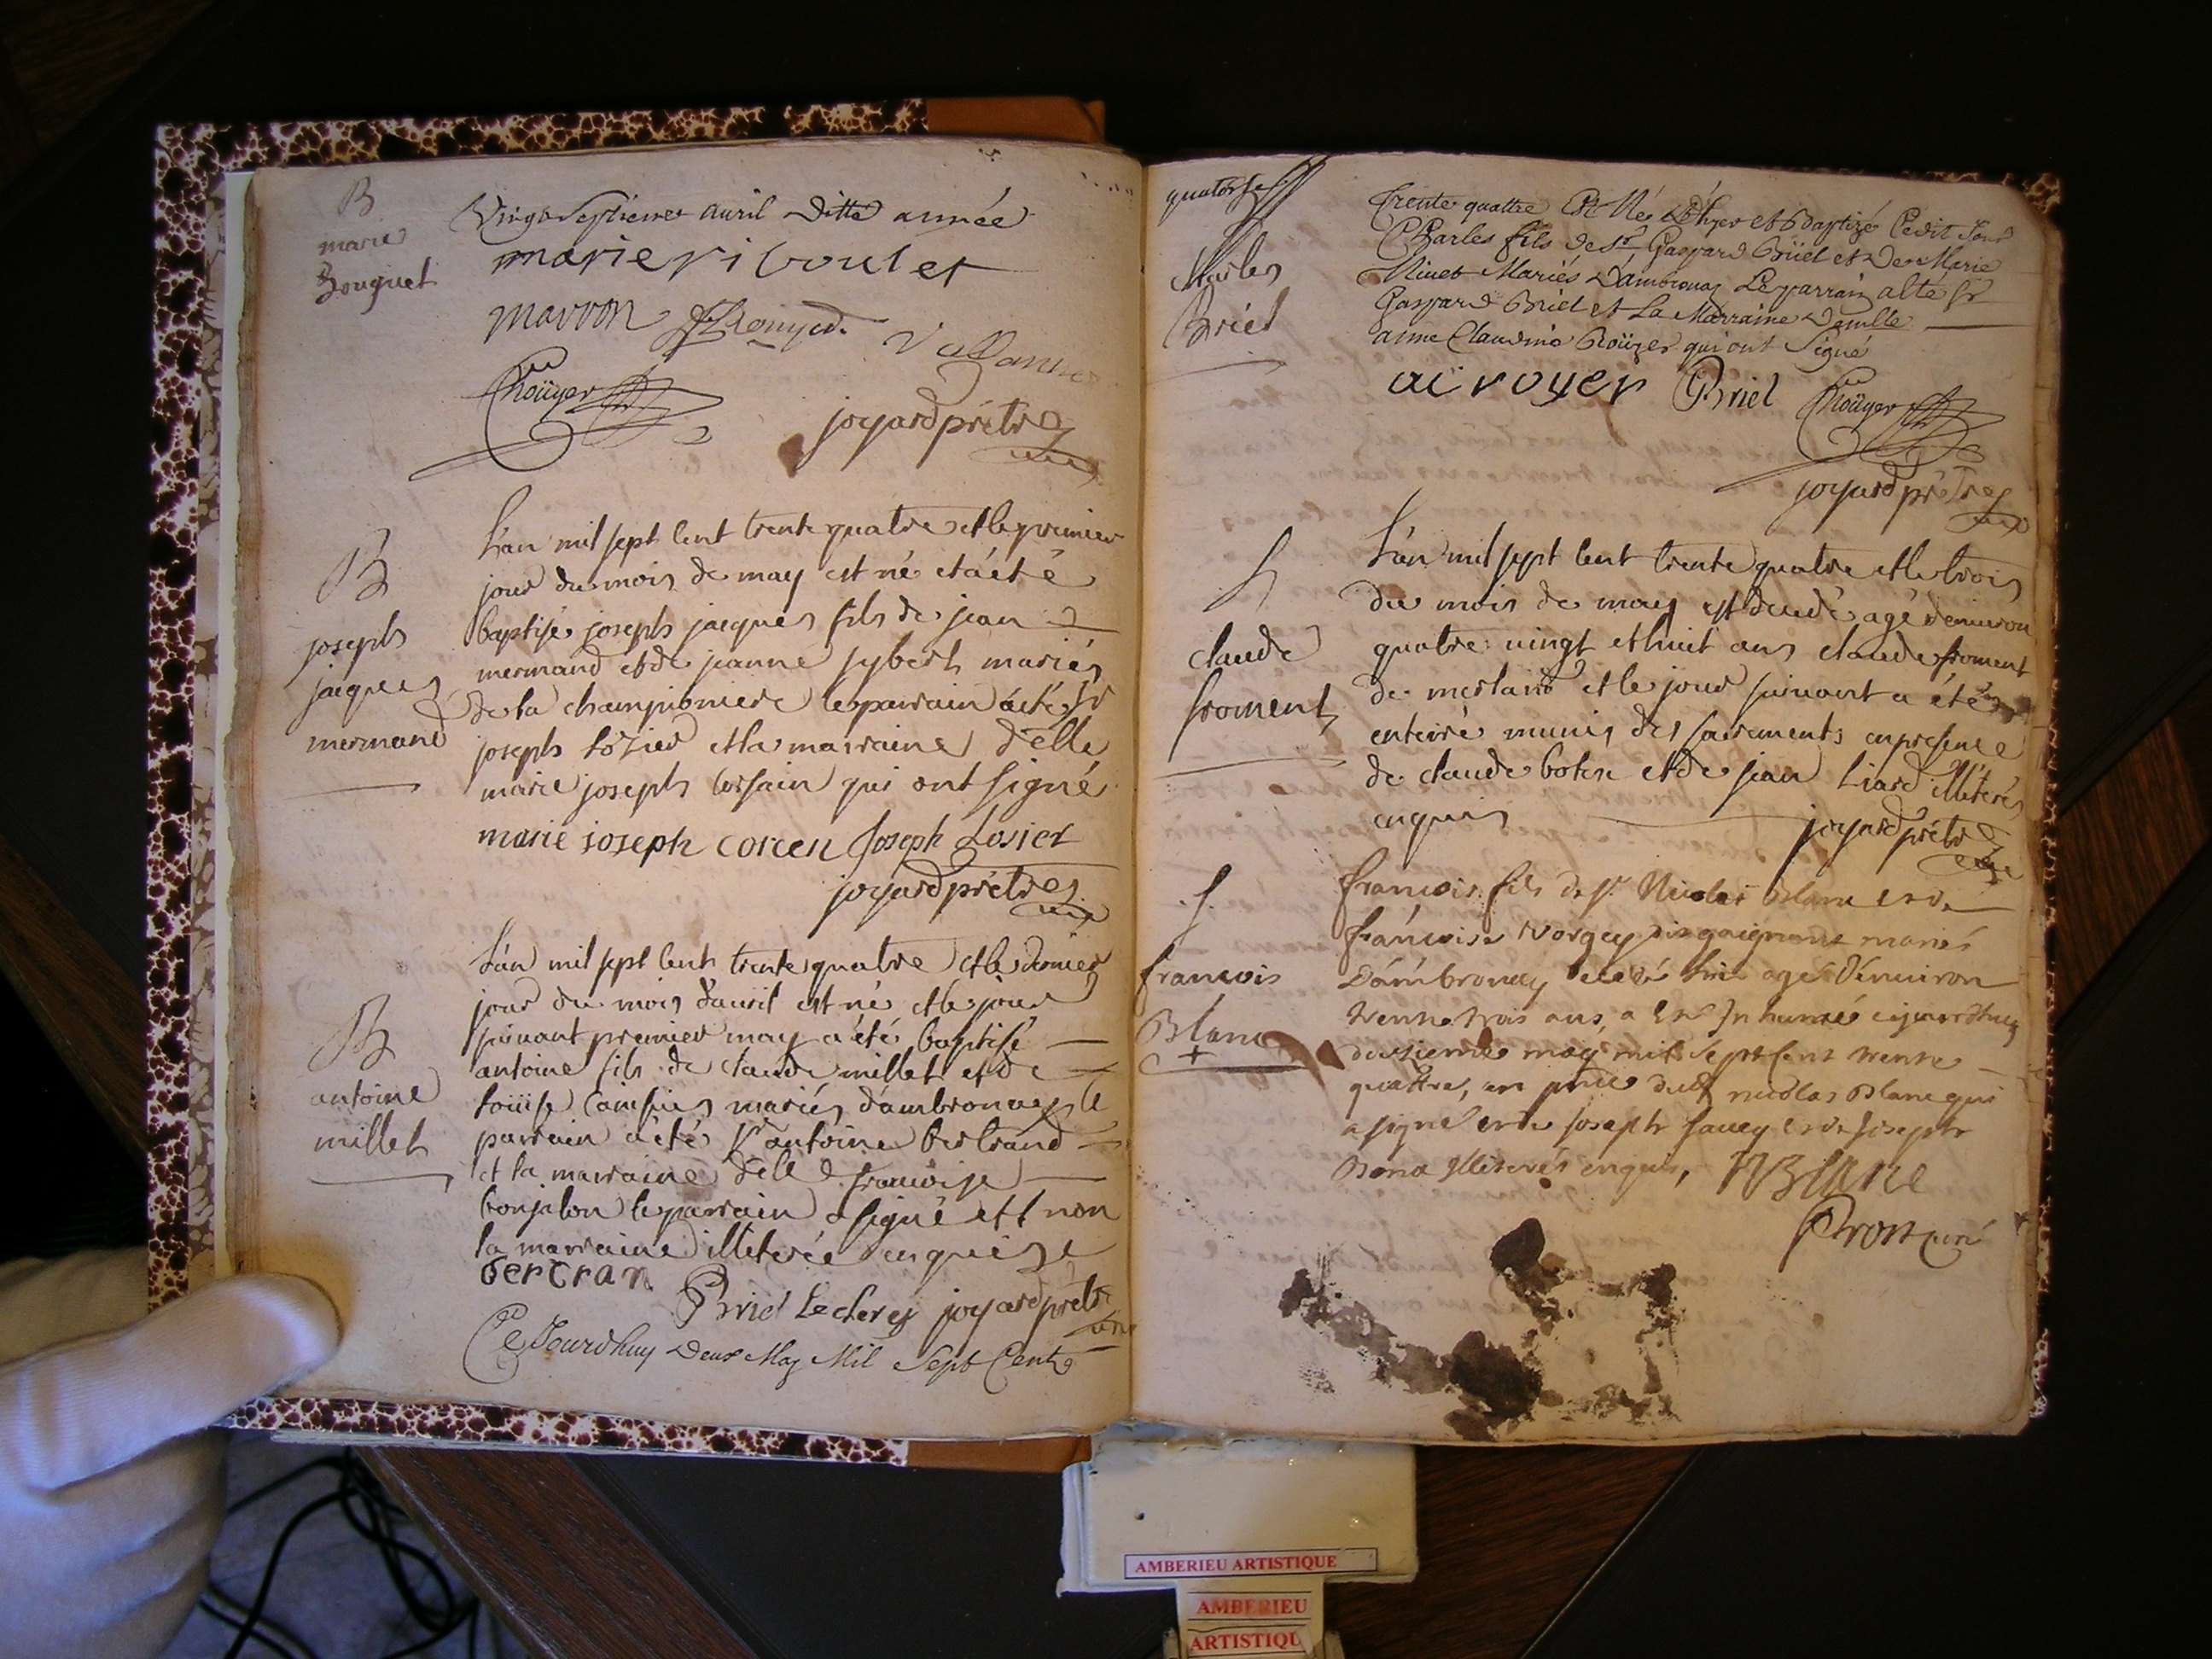 B
marie
Bouguet
Vingt Septieme avril Ditte année
marie riboulet
marron
Roüyer
joyard prêtre
B
joseph
jacques
mermand
L'an mil sept cent trente quatre et le premier
jour du mois de may est né et a été
baptisé joseph jacques fils de jean
mermand et de jeanne sybert mariés
de la championiere le parrain a été sr
joseph lozier et la marraine d'elle
marie joseph corsain qui ont signé
marie joseph corcen Joseph Losier
joyard prêtre
B
antoine
millet
L'an mil sept cent trente quatre et le dernier
jour du mois d'avril est né et le jour
suivant premier may a été baptisé
antoine fils de claude millet et de
loüise mariés d'ambronay le
parrain a été sr antoine bertrand
et la marraine d'elle françoise
bonjelon le parrain a signé et non
la marraine illiterée enquise
Bertran
Briel Leclercq joyard prêtre
Ce Jourdhuy Deux May Mil Sept Cent
quatorze
Charles
Briel
trente quattre Est Né et Baptizé
Charles fils de Sr Gaspard Briel et De Marie
Ninet Mariés D'ambronay Le parrain a été Sr
Gaspard Briel et La Marraine Demlle
anne Claudine Roüyer qui ont Signé
royer Briel Roüyer
joyard prêtre
S
claude
froment
L'an mil sept cent trente quatre et le trois
du mois de may est decedé agé d'environ
quatre vingt et huit ans claude froment
de merland et le jour suivant a été
enterré munis des sacrements en presence
de claude et de jean Liard illiterés
enquis
joyard prêtre
S
francois
Blanc
françois fils de Sr Nicolas Blanc et de
françoise mariés
D'ambronay agé d'environ
trente trois ans, a été Inhumé ce jourdhuy
may mil sept cent trente
quattre, en pnce dudt nicolas Blanc qui
a signé et de joseph et de joseph
Bona Illiterés enquis, NBlanc
curé
AMBERIEU ARTISTIQUE
AMBERIEU
ARTISTIQU